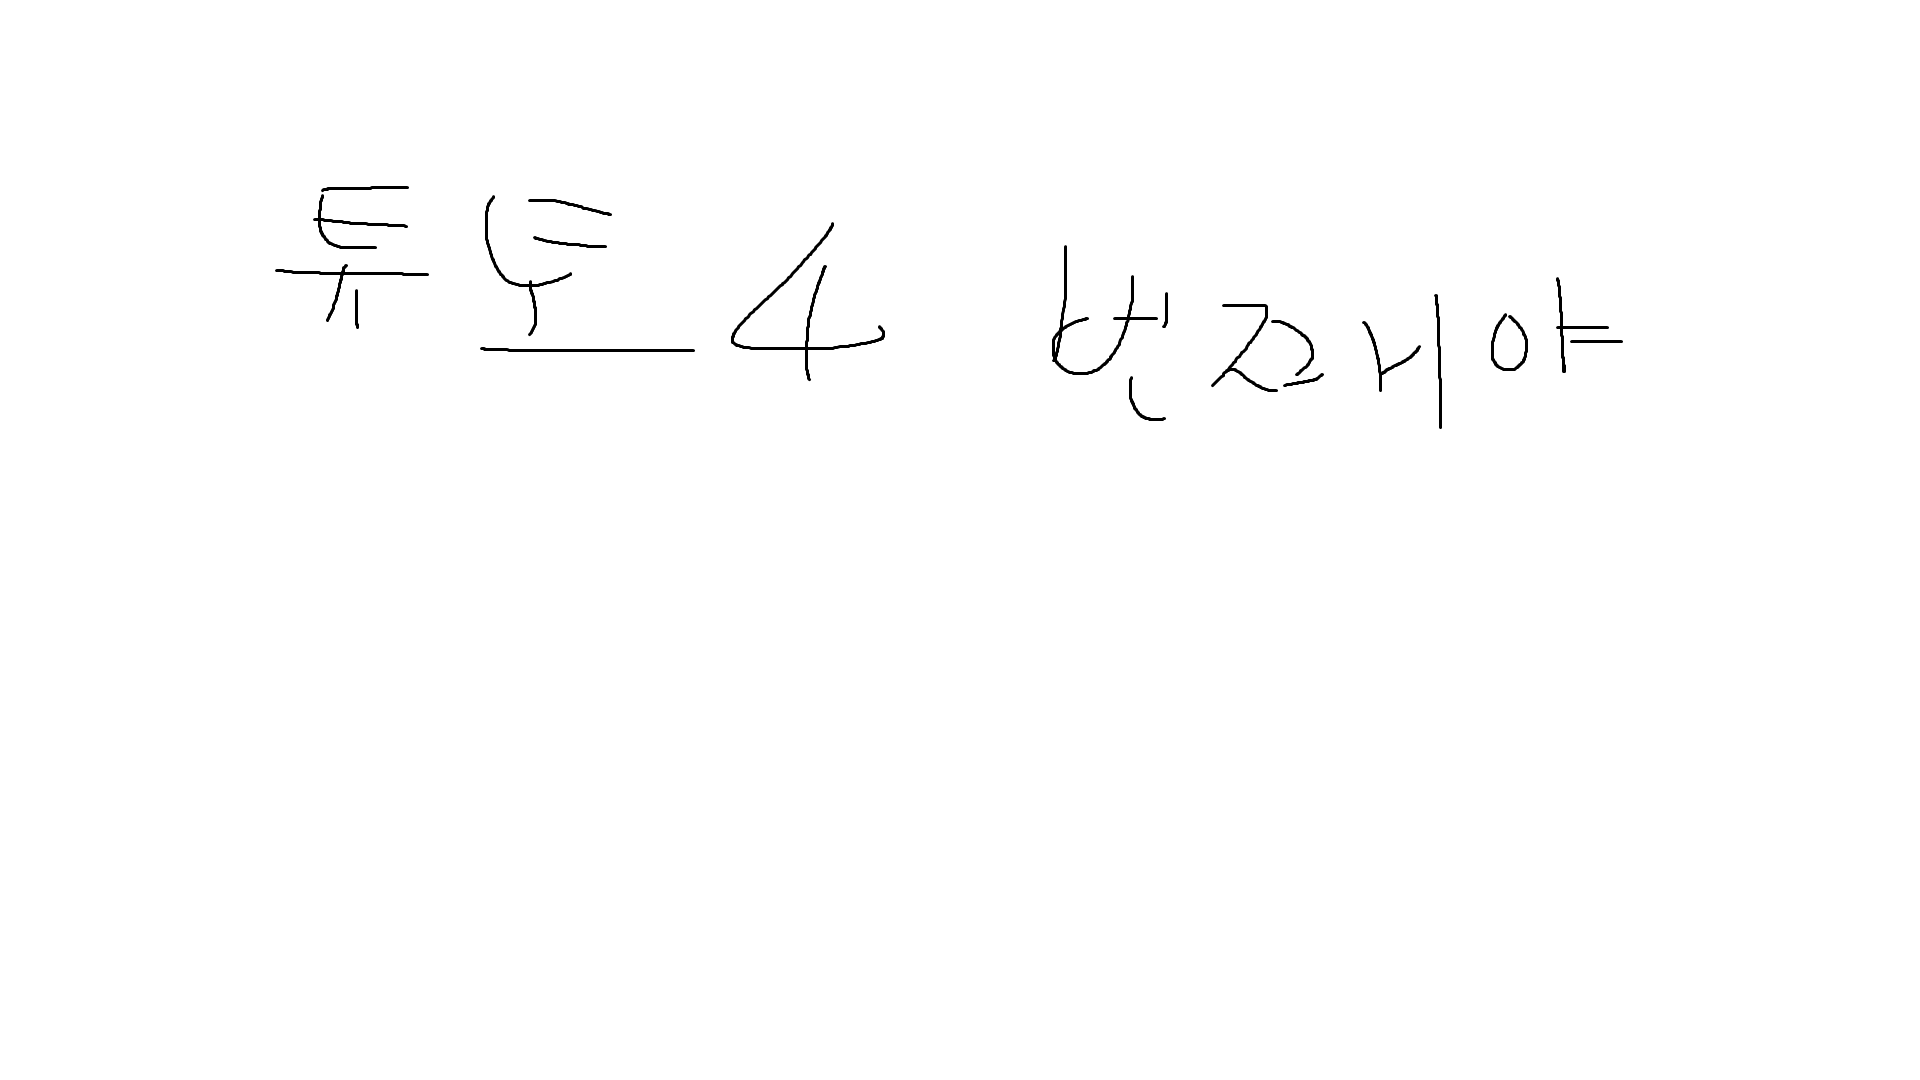 튜토4 번째야